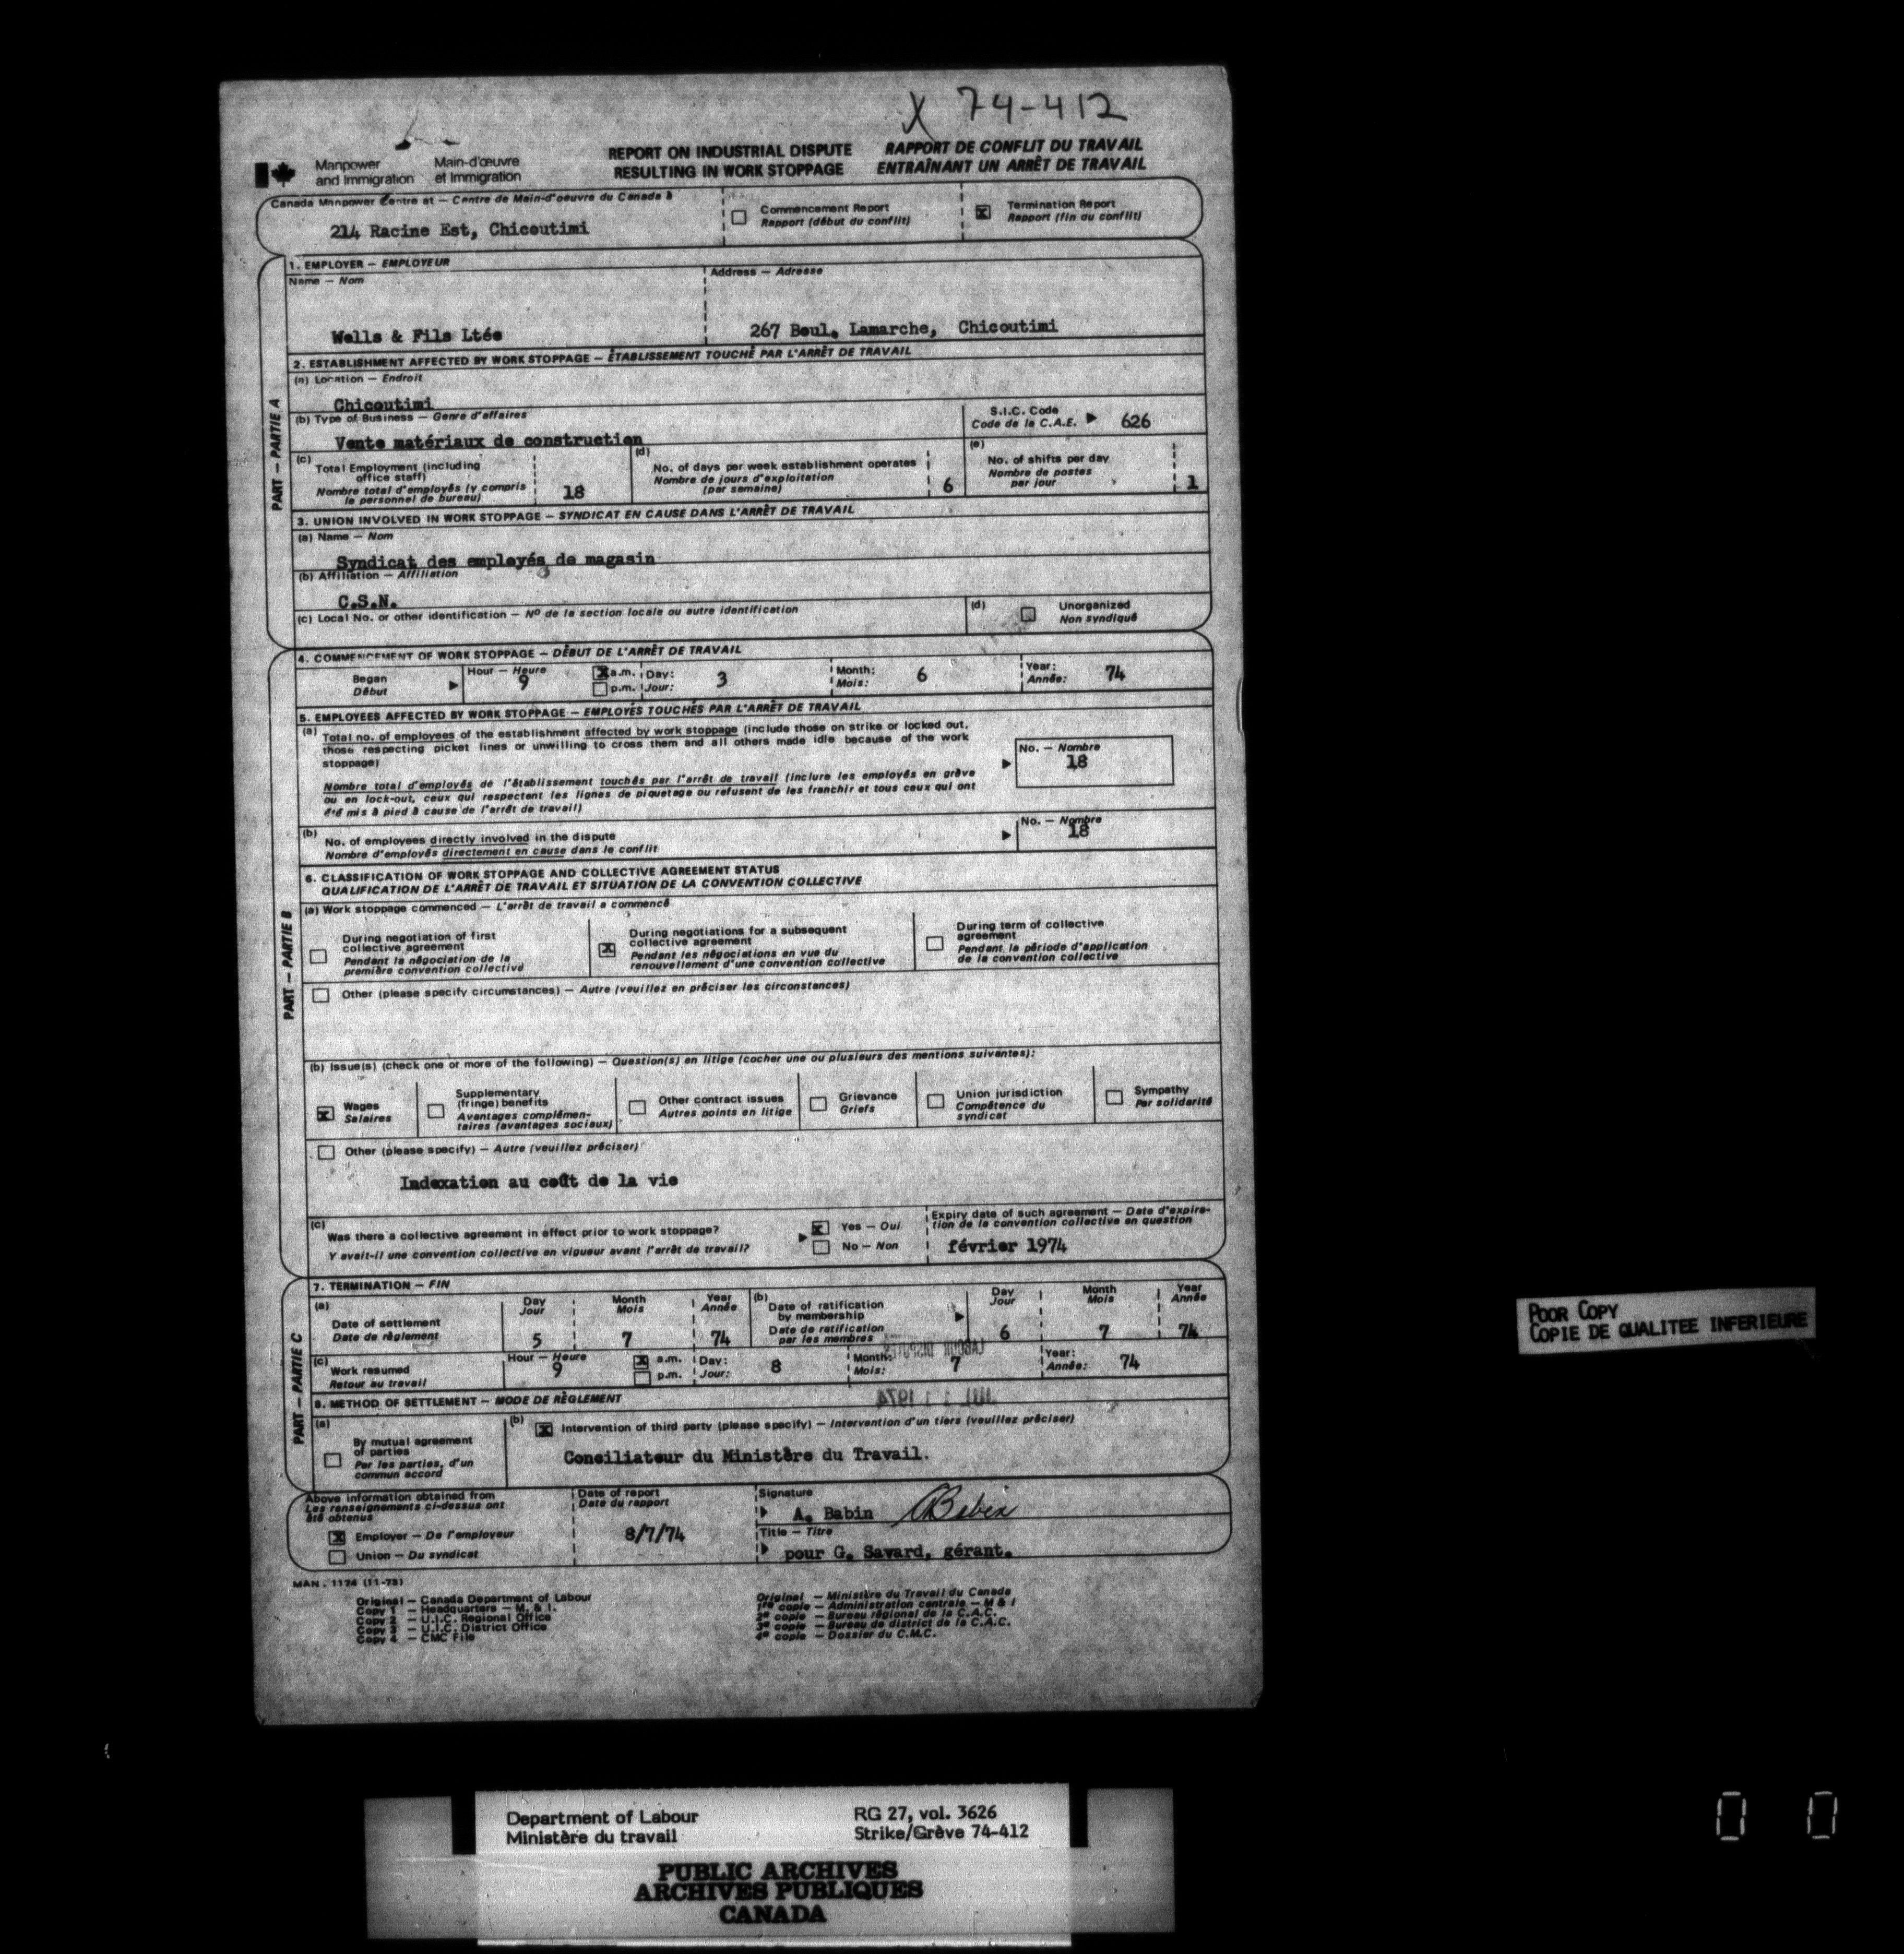 X 74-412
Manpower and Immigration
Main-d'œuvre et Immigration
REPORT ON INDUSTRIAL DISPUTE
RESULTING IN WORK STOPPAGE
RAPPORT DE CONFLIT DU TRAVAIL
ENTRAÎNANT UN ARRÊT DE TRAVAIL
Canada Manpower Centre at — Centre de Main-d'oeuvre du Canada à
214 Racine Est, Chicoutimi
Commencement Report
Rapport (début du conflit)
X Termination Report
Rapport (fin du conflit)
PART — PARTIE A
1. EMPLOYER — EMPLOYEUR
Name — Nom
Wells & Fils Ltée
Address — Adresse
267 Boul. Lamarche, Chicoutimi
2. ESTABLISHMENT AFFECTED BY WORK STOPPAGE — ÉTABLISSEMENT TOUCHÉ PAR L'ARRÊT DE TRAVAIL
(a) Location — Endroit
Chicoutimi
(b) Type of Business — Genre d'affaires
Vente matériaux de construction
S.I.C. Code
Code de la C.A.E.
626
(c) Total Employment (including
office staff)
Nombre total d'employés (y compris
le personnel de bureau)
18
(d)
No. of days per week establishment operates
Nombre de jours d'exploitation
(par semaine)
6
(e)
No. of shifts per day
Nombre de postes
par jour
1
3. UNION INVOLVED IN WORK STOPPAGE — SYNDICAT EN CAUSE DANS L'ARRÊT DE TRAVAIL
(a) Name — Nom
Syndicat des employés de magasin
(b) Affiliation — Affiliation
C.S.N.
(c) Local No. or other identification — Nº de la section locale ou autre identification
(d) Unorganized
Non syndiqué
PART — PARTIE B
4. COMMENCEMENT OF WORK STOPPAGE — DÉBUT DE L'ARRÊT DE TRAVAIL
Began
Début
Hour — Heure
9
X a.m.
p.m.
Day:
Jour:
3
Month:
Mois:
6
Year:
Année:
74
5. EMPLOYEES AFFECTED BY WORK STOPPAGE — EMPLOYÉS TOUCHÉS PAR L'ARRÊT DE TRAVAIL
(a) Total no. of employees of the establishment affected by work stoppage (include those on strike or locked out,
those respecting picket lines or unwilling to cross them and all others made idle because of the work
stoppage)
Nombre total d'employés de l'établissement touchés par l'arrêt de travail (inclure les employés en grève
ou en lock-out, ceux qui respectent les lignes de piquetage ou refusent de les franchir et tous ceux qui ont
été mis à pied à cause de l'arrêt de travail)
No. — Nombre
18
(b)
No. of employees directly involved in the dispute
Nombre d'employés directement en cause dans le conflit
No. — Nombre
18
6. CLASSIFICATION OF WORK STOPPAGE AND COLLECTIVE AGREEMENT STATUS
QUALIFICATION DE L'ARRÊT DE TRAVAIL ET SITUATION DE LA CONVENTION COLLECTIVE
(a) Work stoppage commenced — L'arrêt de travail a commencé
During negotiation of first
collective agreement
Pendant la négociation de la
première convention collective
X During negotiations for a subsequent
collective agreement
Pendant les négociations en vue du
renouvellement d'une convention collective
During term of collective
agreement
Pendant la période d'application
de la convention collective
Other (please specify circumstances) — Autre (veuillez en préciser les circonstances)
(b) Issue(s) (check one or more of the following) — Question(s) en litige (cocher une ou plusieurs des mentions suivantes):
X Wages
Salaires
Supplementary
(fringe) benefits
Avantages complémen-
taires (avantages sociaux)
Other contract issues
Autres points en litige
Grievance
Griefs
Union jurisdiction
Compétence du
syndicat
Sympathy
Par solidarité
Other (please specify) — Autre (veuillez préciser)
Indexation au coût de la vie
(c)
Was there a collective agreement in effect prior to work stoppage?
Y avait-il une convention collective en vigueur avant l'arrêt de travail?
X Yes — Oui
No — Non
Expiry date of such agreement — Date d'expira-
tion de la convention collective en question
février 1974
PART — PARTIE C
7. TERMINATION — FIN
(a)
Date of settlement
Date de règlement
Day
Jour
5
Month
Mois
7
Year
Année
74
(b)
Date of ratification
by membership
Date de ratification
par les membres
Day
Jour
6
Month
Mois
7
Year
Année
74
LABOUR DISPUTES
(c)
Work resumed
Retour au travail
Hour — Heure
9
X a.m.
p.m.
Day:
Jour:
8
Month:
Mois:
7
Year:
Année:
74
JUL 11 1974
8. METHOD OF SETTLEMENT — MODE DE RÈGLEMENT
(a)
By mutual agreement
of parties
Par les parties, d'un
commun accord
(b) X Intervention of third party (please specify) — Intervention d'un tiers (veuillez préciser)
Conciliateur du Ministère du Travail.
Above information obtained from
Les renseignements ci-dessus ont
été obtenus
X Employer — De l'employeur
Union — Du syndicat
Date of report
Date du rapport
8/7/74
Signature
A. Babin ABabin
Title — Titre
pour G. Savard, gérant.
MAN. 1174 (11-73)
Original — Canada Department of Labour
Copy 1 — Headquarters — M. & I.
Copy 2 — U.I.C. Regional Office
Copy 3 — U.I.C. District Office
Copy 4 — CMC File
Original — Ministère du Travail du Canada
1re copie — Administration centrale — M & I
2e copie — Bureau régional de la C.A.C.
3e copie — Bureau de district de la C.A.C.
4e copie — Dossier du C.M.C.
POOR COPY
COPIE DE QUALITEE INFERIEURE
Department of Labour
Ministère du travail
RG 27, vol. 3626
Strike/Grève 74-412
PUBLIC ARCHIVES
ARCHIVES PUBLIQUES
CANADA
0 0